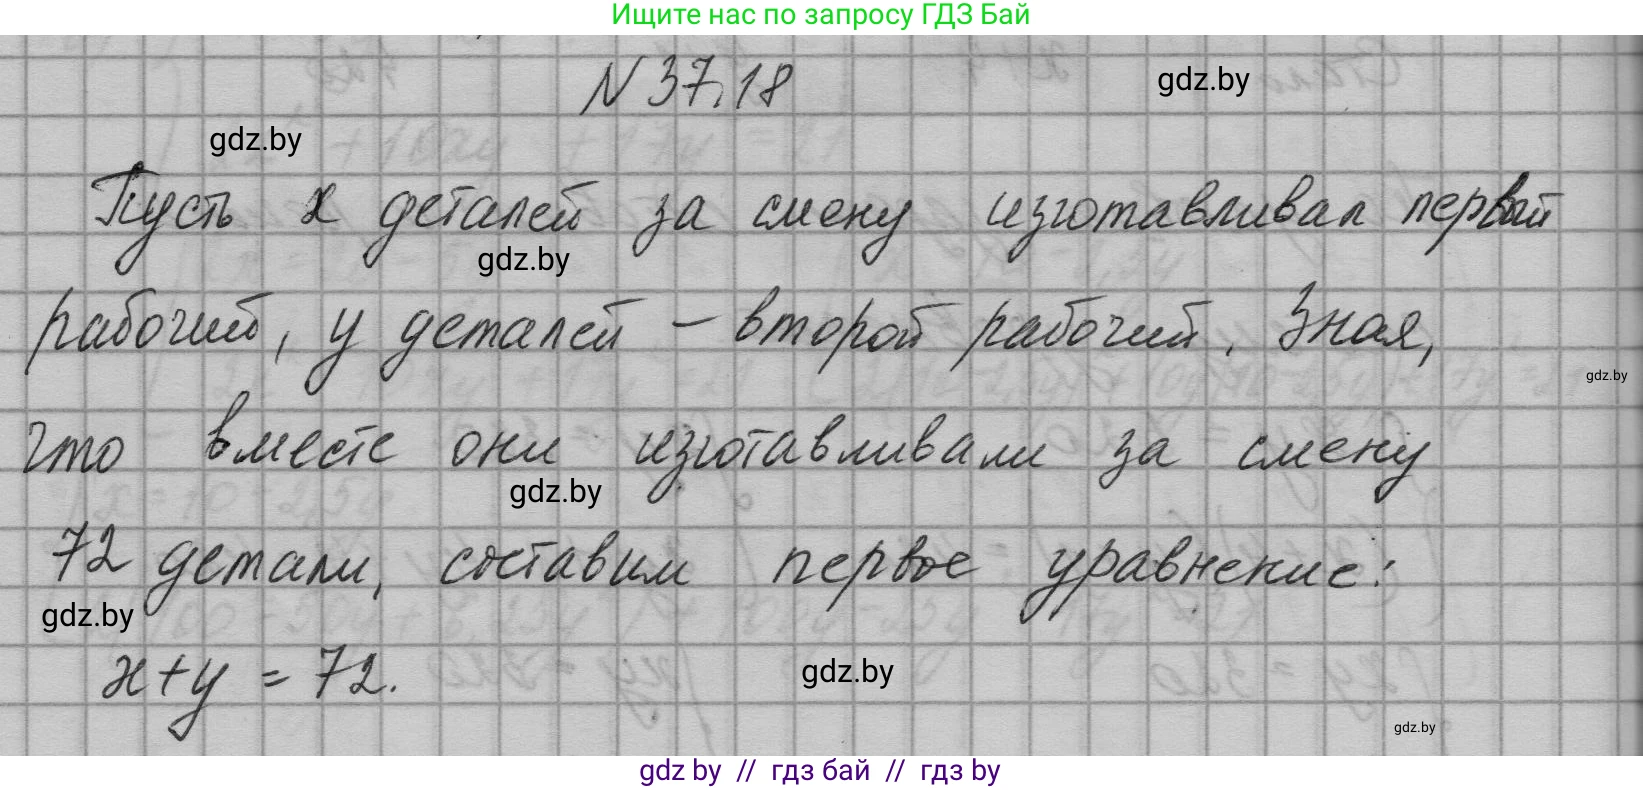 Ищите нас по запросу ГДЗ Бай
N 37.18
gdz.by
gdz.by
Пусть x деталей за смену изготавливал первый
gdz.by
рабочий, y деталей – второй рабочий. Зная,
gdz.by
что вместе они изготавливали за смену
gdz.by
72 детали, составим первое уравнение:
gdz.by
x+y = 72.
gdz.by
gdz.by
gdz by // гдз бай // гдз by